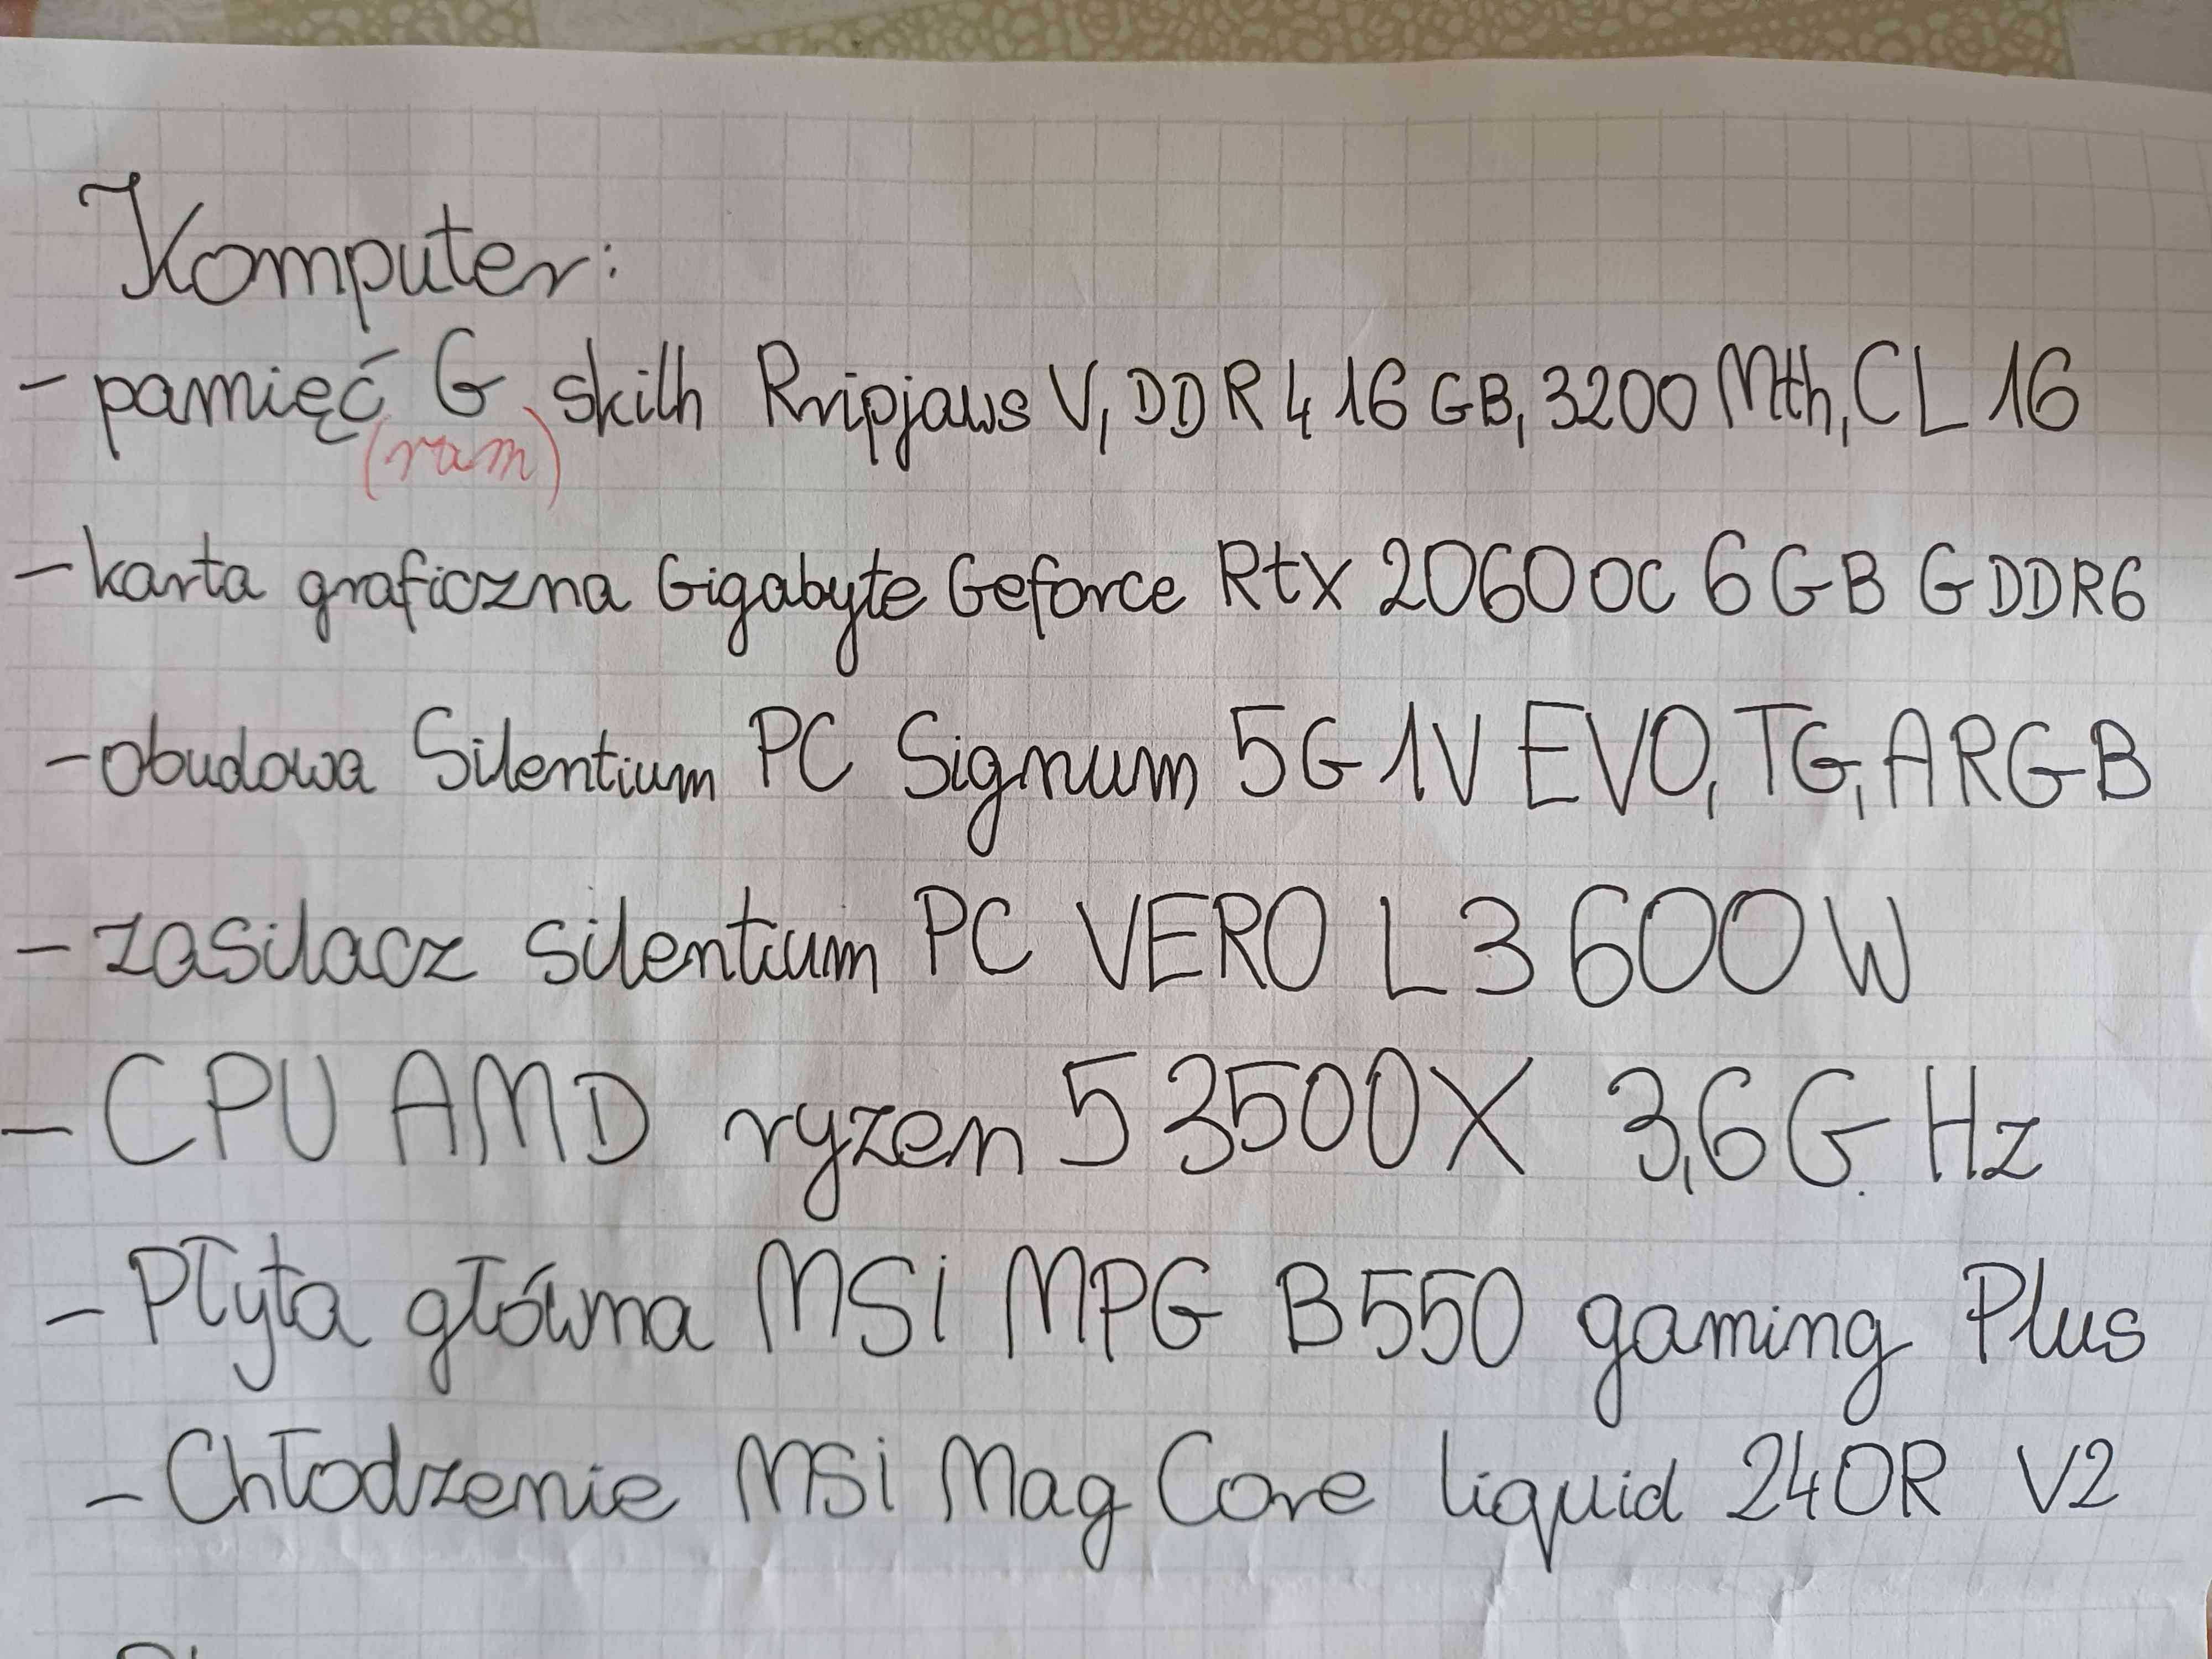 Komputer:
- pamięć G skilh Rripjaws V, DDR4 16 GB, 3200 Mth, CL 16
(ram)
- karta graficzna Gigabyte Geforce Rtx 2060 OC 6 GB GDDR6
- obudowa Silentium PC Signum 5G 1V EVO, TG, ARGB
- zasilacz silentium PC VERO L3 600W
- CPU AMD ryzen 5 3500X 3,6 G Hz
- Płyta główna MSi MPG B550 gaming Plus
- Chłodzenie MSi Mag Core liquid 240R V2